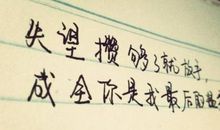 失望攒够了就放手,
成全你是我最后的